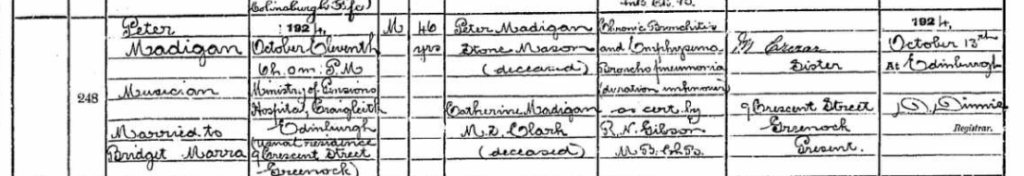 Colinsburgh Fife)
Peter
Madigan
Musician
Married to
Bridget Marra
248
1924,
October Eleventh
Ministry of Pensions
Hospital, Craigleith
Edinburgh
(usual residence
9 Crescent Street
Greenock)
M
46
yrs
Peter Madigan
Stone Mason
(deceased)
Catherine Madigan
M.S. Clark
(deceased)
Chronic Bronchitis
and Emphysema
Bronchopneumonia
as cert by
R. N. Gibson
M.B. Ch.B.
Sister
9 Crescent Street
Greenock
Present.
1924,
October 13th
At Edinburgh
Registrar.